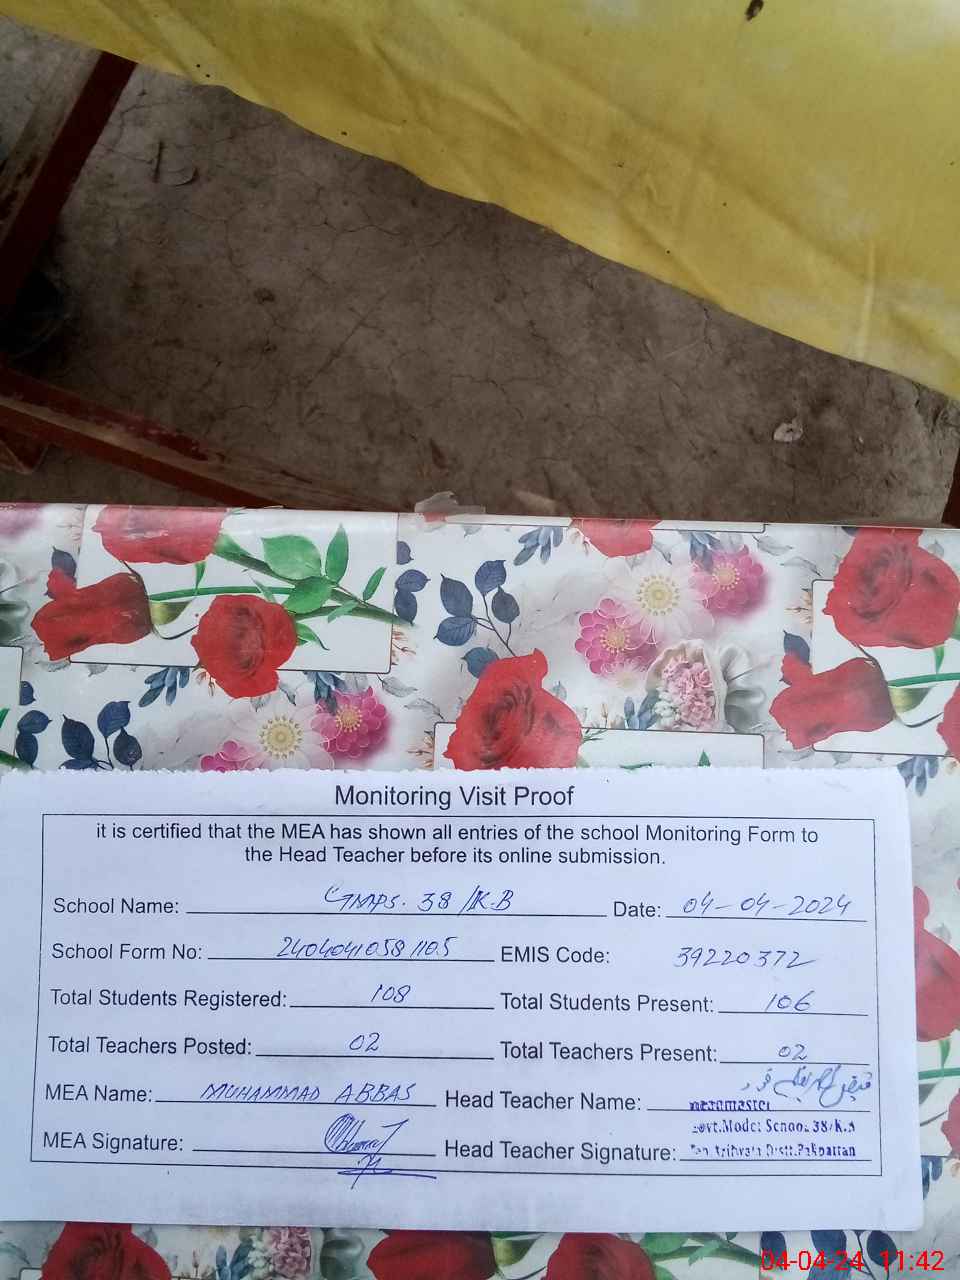 Monitoring Visit Proof
it is certified that the MEA has shown all entries of the school Monitoring Form to
the Head Teacher before its online submission.
School Name: GMPS. 38/K.B Date: 04-04-2024
School Form No: 24040410581105 EMIS Code: 39220372
Total Students Registered: 108 Total Students Present: 106
Total Teachers Posted: 02 Total Teachers Present: 02
MEA Name: MUHAMMAD ABBAS Head Teacher Name:
Headmaster
Govt.Model School 38/K.B
MEA Signature: Head Teacher Signature:
Teh. Arifwala Distt.Pakpattan
04-04-24 11:42